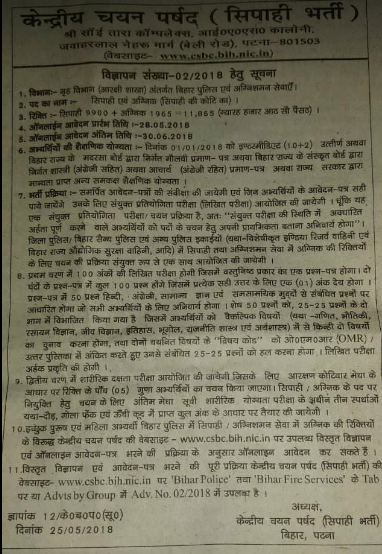 केन्द्रीय चयन पर्षद ( सिपाही भर्ती )
श्री साँई तारा कॉम्पलेक्स, आई०ए०एस० कालोनी,
जवाहरलाल नेहरू मार्ग (बेली रोड), पटना-801503
(वेबसाइट- www.csbc.bih.nic.in)
विज्ञापन संख्या-02/2018 हेतु सूचना
1. विभाग:- गृह विभाग (आरक्षी शाखा) अंतर्गत बिहार पुलिस एवं अग्निशमन सेवाएँ।
2. पद का नाम :- सिपाही एवं अग्निक (सिपाही की कोटि का) ।
3. रिक्ति :- सिपाही 9900 + अग्निक 1965 =11,865 (ग्यारह हजार आठ सौ पैंसठ) ।
4. ऑनलाईन आवेदन प्रारंभ तिथि :-28.05.2018
5. ऑनलाईन आवेदन अंतिम तिथि :-30.06.2018
6. अभ्यर्थियों की शैक्षणिक योग्यता :- दिनांक 01/01/2018 को इण्टरमीडिएट (10+2) उत्तीर्ण अथवा
बिहार राज्य के मदरसा बोर्ड द्वारा निर्गत मौलवी प्रमाण- पत्र अथवा बिहार राज्य के संस्कृत बोर्ड द्वारा
निर्गत शास्त्री (अंग्रेजी सहित) अथवा आचार्य (अंग्रेजी रहित) प्रमाण-पत्र अथवा राज्य सरकार द्वारा
मान्यता प्राप्त अन्य समकक्ष शैक्षणिक योग्यता ।
7. भर्ती प्रक्रिया :- समर्पित आवेदन-पत्रों की संवीक्षा की जायेगी एवं जिन अभ्यर्थियों के आवेदन-पत्र सही
पाये जायेंगे उनके लिए संयुक्त प्रतियोगिता परीक्षा (लिखित परीक्षा) आयोजित की जायेगी । चूंकि यह
एक संयुक्त प्रतियोगिता परीक्षा/ चयन प्रक्रिया है, अतः "संयुक्त परीक्षा की स्थिति में अवधारित
अर्हता पूर्ण करने वाले अभ्यर्थियों को पदों के चयन हेतु अपनी प्राथमिकता बताना अनिवार्य होगा"।
जिला पुलिस/ बिहार सैन्य पुलिस एवं अन्य पुलिस इकाईयों (यथा-विशेषीकृत इण्डिया रिजर्व वाहिनी एवं
बिहार राज्य औद्योगिक सुरक्षा वाहिनी, आदि) में सिपाही तथा अग्निशमन सेवा में अग्निक की रिक्तियों
के लिए चयन की प्रक्रिया संयुक्त रूप से एक साथ आयोजित की जायेगी ।
8. प्रथम चरण में 100 अंकों की लिखित परीक्षा होगी जिसमें वस्तुनिष्ठ प्रकार का एक प्रश्न-पत्र होगा। दो
घंटों के प्रश्न-पत्र में कुल 100 प्रश्न होंगे जिसमें प्रत्येक सही उत्तर के लिए एक (01) अंक देय होगा ।
प्रश्न-पत्र में 50 प्रश्न हिन्दी, अंग्रेजी, सामान्य ज्ञान एवं समसामयिक मुद्दों से संबंधित प्रश्नों पर
आधारित होगा जो सभी अभ्यर्थियों के लिए अनिवार्य होगा । शेष 50 प्रश्नों को, 25-25 प्रश्नों के दो
भाग में विभाजित किया गया है जिसमें अभ्यर्थियों को वैकल्पिक विषयों (यथा -गणित, भौतिकी,
रसायन विज्ञान, जीव विज्ञान, इतिहास, भूगोल, राजनीति शास्त्र एवं अर्थशास्त्र) में से किन्हीं दो विषयों
का चुनाव करना होगा, तथा दोनों चयनित विषयों के "विषय कोड" को ओ०एम०आर (OMR) /
उत्तर पुस्तिका में अंकित करते हुए उनसे संबंधित 25-25 प्रश्नों को हल करना होगा । लिखित परीक्षा
अर्हक प्रकृति की होगी ।
9. द्वितीय चरण में शारीरिक दक्षता परीक्षा आयोजित की जायेगी, जिसके लिए आरक्षण कोटिवार मेधा के
आधार पर रिक्ति के पाँच (05) गुणा अभ्यर्थियों का चयन किया जाएगा। सिपाही / अग्निक के पद पर
नियुक्ति हेतु चयन के लिए अंतिम मेधा सूची शारीरिक योग्यता परीक्षा के अधीन तीनों स्पर्धाओं
यथा-दौड़, गोला फेंक एवं ऊँची कूद में प्राप्त कुल अंक के आधार पर तैयार की जायेगी ।
10.इच्छुक पुरूष एवं महिला अभ्यर्थी बिहार पुलिस में सिपाही / अग्निशमन सेवा में अग्निक की रिक्तियों
के विरूद्ध केन्द्रीय चयन पर्षद की वेबसाइट - www.csbc.bih.nic.in पर उपलब्ध विस्तृत विज्ञापन
एवं ऑनलाइन आवेदन- पत्र भरने की प्रक्रिया के अनुसार ऑनलाइन आवेदन कर सकते हैं ।
11.विस्तृत विज्ञापन एवं आवेदन-पत्र भरने की पूरी प्रक्रिया केन्द्रीय चयन पर्षद (सिपाही भर्ती) की
वेबसाइट- www.csbc.bih.nic.in पर 'Bihar Police' तथा 'Bihar Fire Services' के Tab
पर या Advts by Group में Adv. No. 02/2018 में उपलब्ध है ।
ज्ञापांक 12/के०च०प०(सू०)
दिनांक 25/05/2018
अध्यक्ष,
केन्द्रीय चयन पर्षद (सिपाही भर्ती)
बिहार, पटना